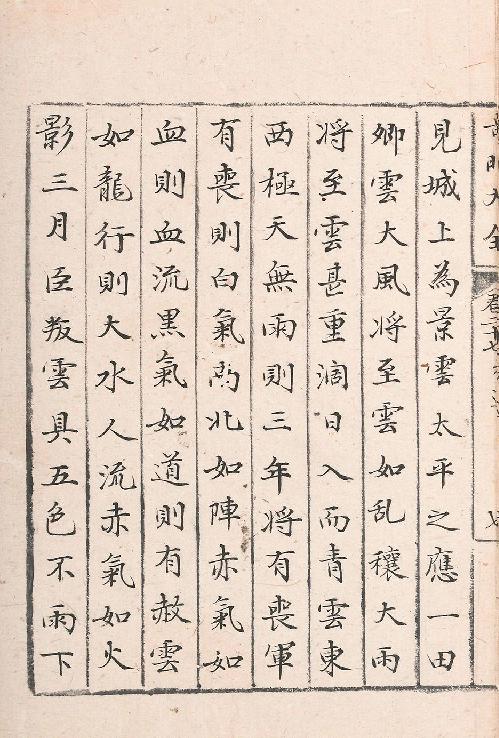 見城上為景雲太平之應一田
卿雲大風将至雲如乱穰大雨
将至雲甚重滴日入而青雲東
西極天無雨則三年将有喪軍
有喪則白氣北如陣赤氣如
血則血流黒氣如道則有赦雲
如龍行則大水人流赤氣如火
影三月臣叛雲具五色不雨下